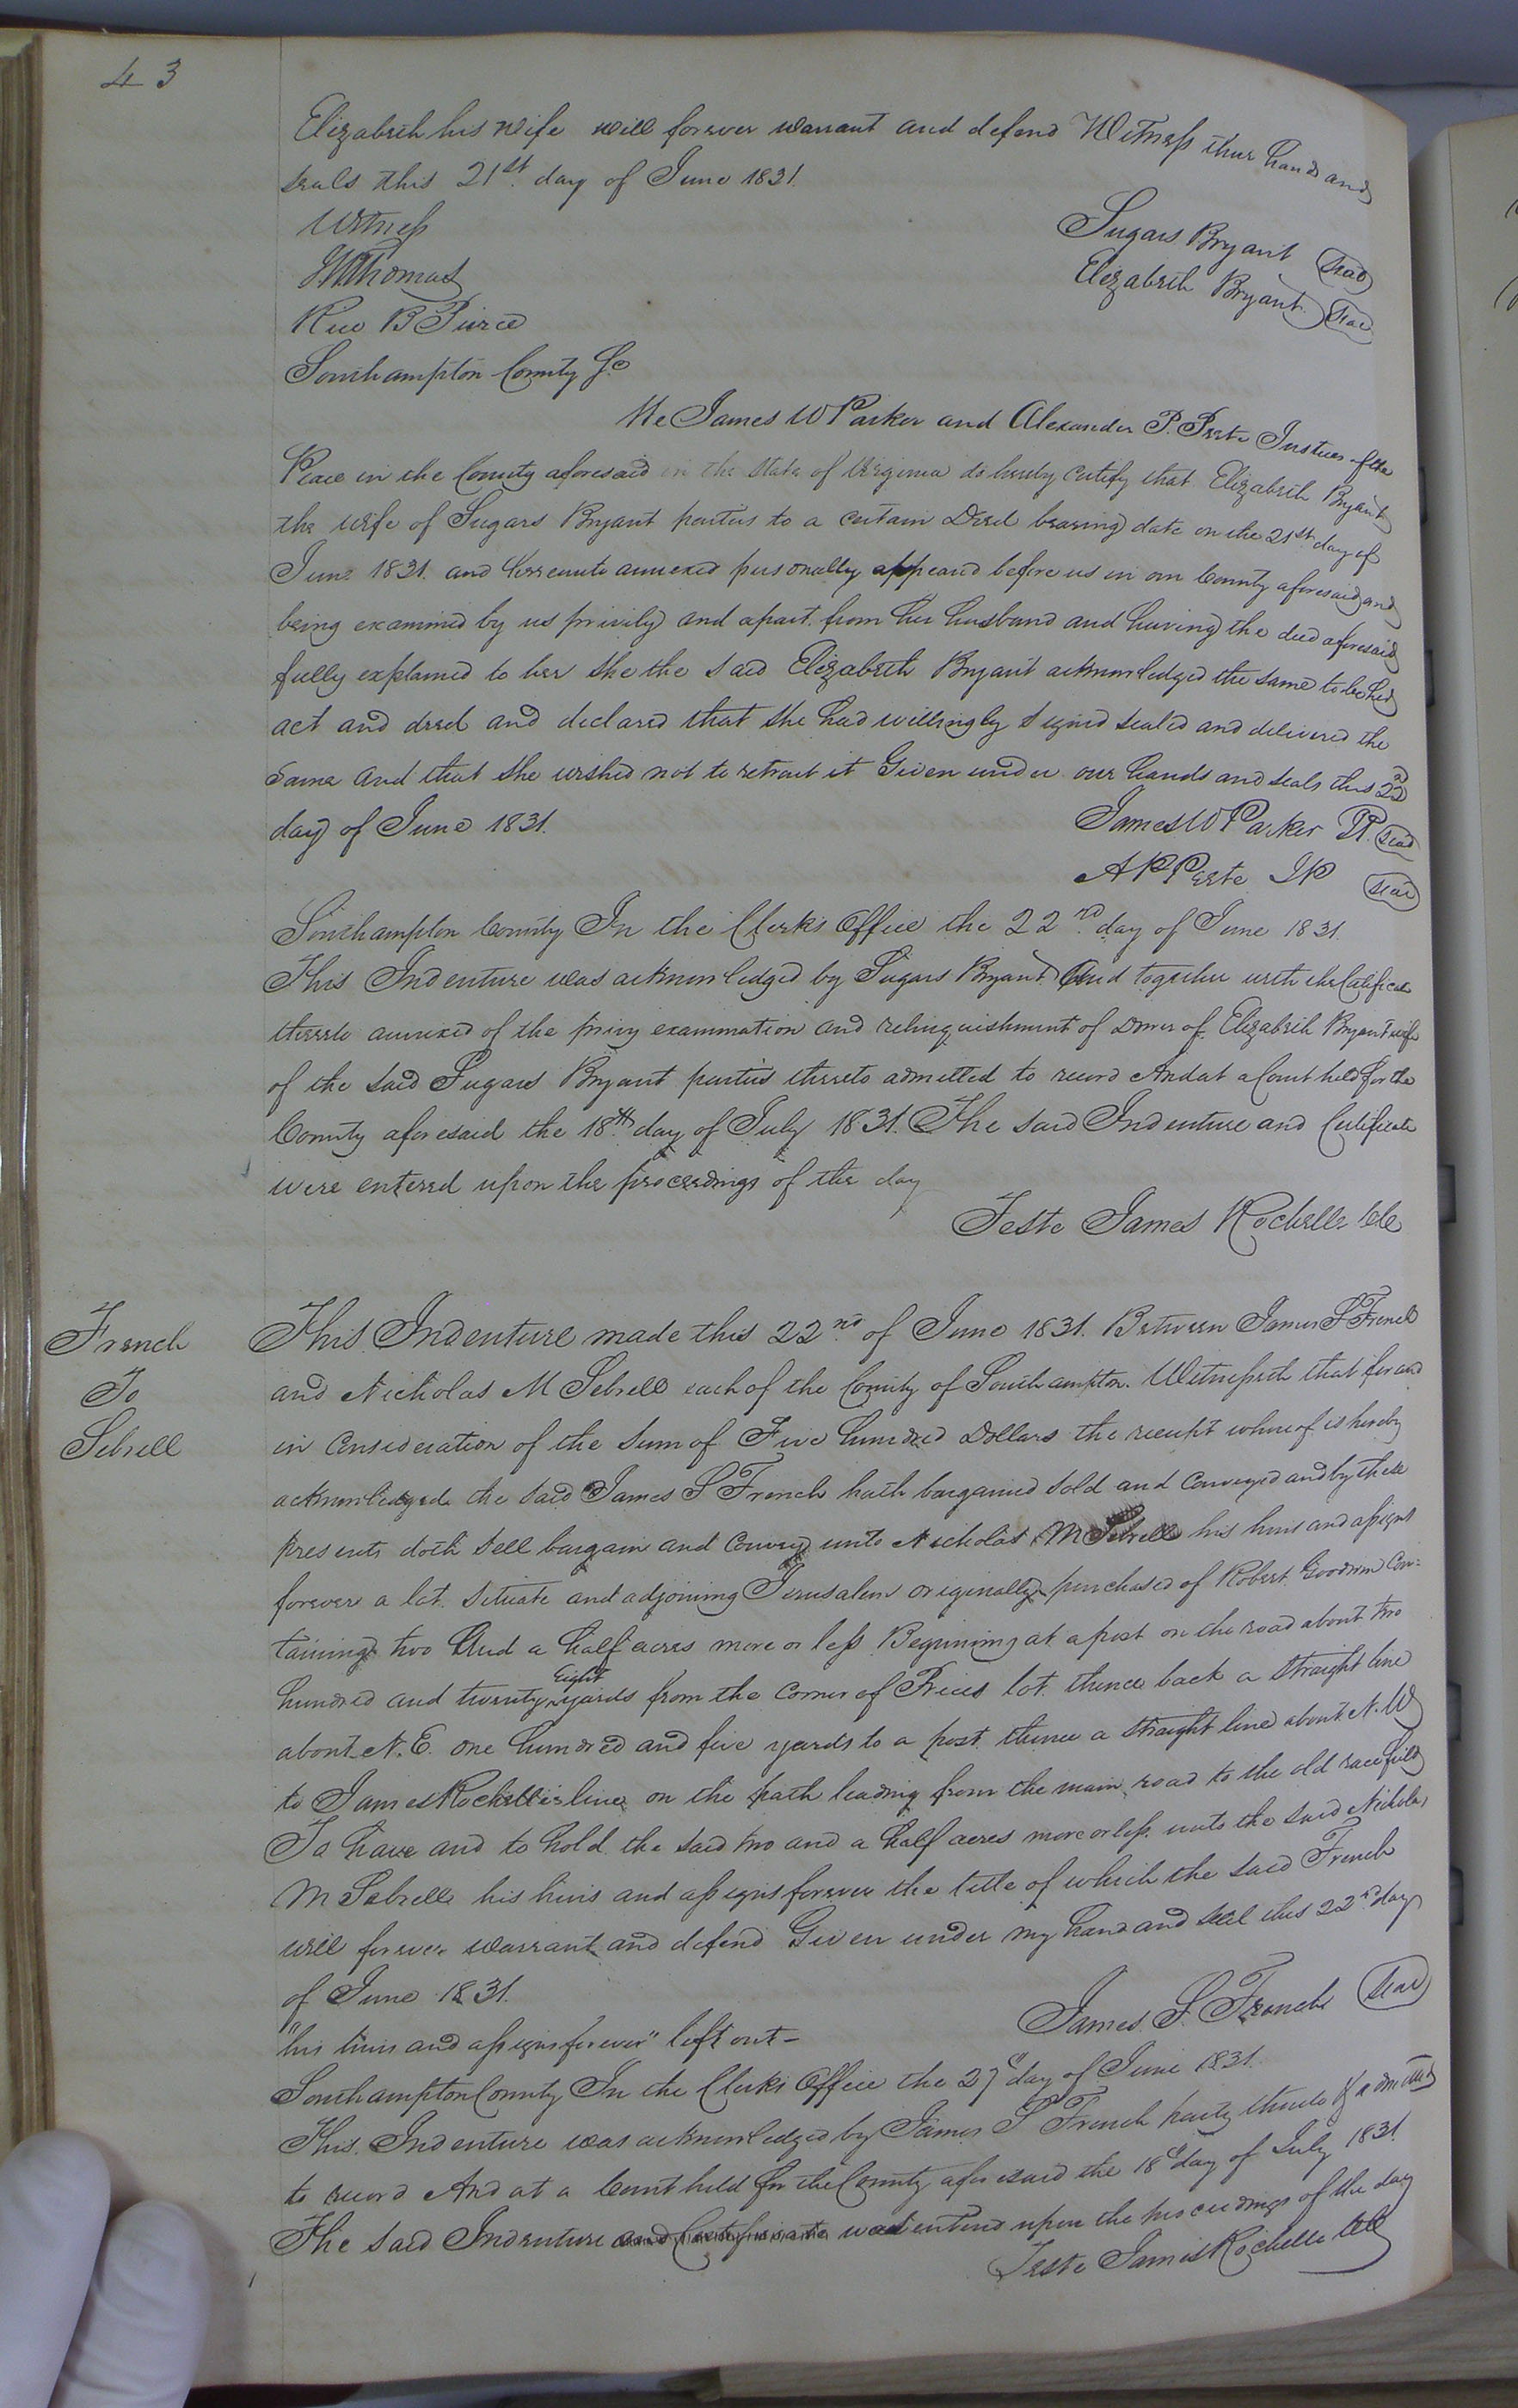 43
Elizabeth his wife will forever warrant and defend Witness their hands and
seals this 21st day of June 1831.
Witness
Sugars Bryant (Seal)
Elizabeth Bryant (Seal)
Thomas
B Pierce
Southampton County Sc
We James W Parker and Alexander P. Peete Justices of the
Peace in the County aforesaid in the State of Virginia do hereby certify that Elizabeth Bryant
the wife of Sugars Bryant parties to a certain Deed bearing date on the 21st day of
June 1831. and hereunto annexed personally appeared before us in our County aforesaid and
being examined by us privily and apart from her husband and having the deed aforesaid
fully explained to her she the said Elizabeth Bryant acknowledged the same to be her
act and deed and declared that she had willingly signed sealed and delivered the
same and that she wished not to retract it Given under our hands and seals this 22d
day of June 1831.
James W Parker JP. (Seal)
A P Peete JP (Seal)
Southampton County In the Clerk's Office the 22nd day of June 1831.
This Indenture was acknowledged by Sugars Bryant And together with the Certificate
thereto annexed of the privy examination and relinquishment of Dower of Elizabeth Bryant wife
of the said Sugars Bryant parties thereto admitted to record And at a Court held for the
County aforesaid the 18th day of July 1831. The said Indenture and Certificate
were entered upon the proceedings of the day
Teste James Rochelle Clk
French
To
Sebrell
This Indenture made this 22nd of June 1831. Between James S French
and Nicholas M Sebrell each of the County of Southampton. Witnesseth that for and
in Consideration of the sum of Five hundred Dollars the receipt whereof is hereby
acknowledged the said James S French hath bargained sold and conveyed and by these
presents doth sell bargain and convey unto Nicholas M Sebrell his heirs and assigns
forever a lot situate and adjoining Jerusalem originally purchased of Robert Goodwin Con-
taining two And a half acres more or less Beginning at a post on the road about two
hundred and twenty Eight yards from the corner of Prices lot thence back a straight line
about N.E. one hundred and five yards to a post thence a straight line about N.W
to James Rochelle's line on the path leading from the main road to the old race field
To have and to hold the said two and a half acres more or less unto the said Nicholas
M Sebrell his heirs and assigns forever the title of which the said French
will forever warrant and defend Given under my hand and seal this 22nd day
of June 1831.
James S. French (Seal)
"his heirs and assigns forever" left out-
Southampton County In the Clerks Office the 27th day of June 1831.
This Indenture was acknowledged by James S French party thereto & admitted
to record And at a Court held for the County aforesaid the 18th day of July 1831.
The said Indenture and Certificate was entered upon the proceedings of the day
Teste James Rochelle Clk